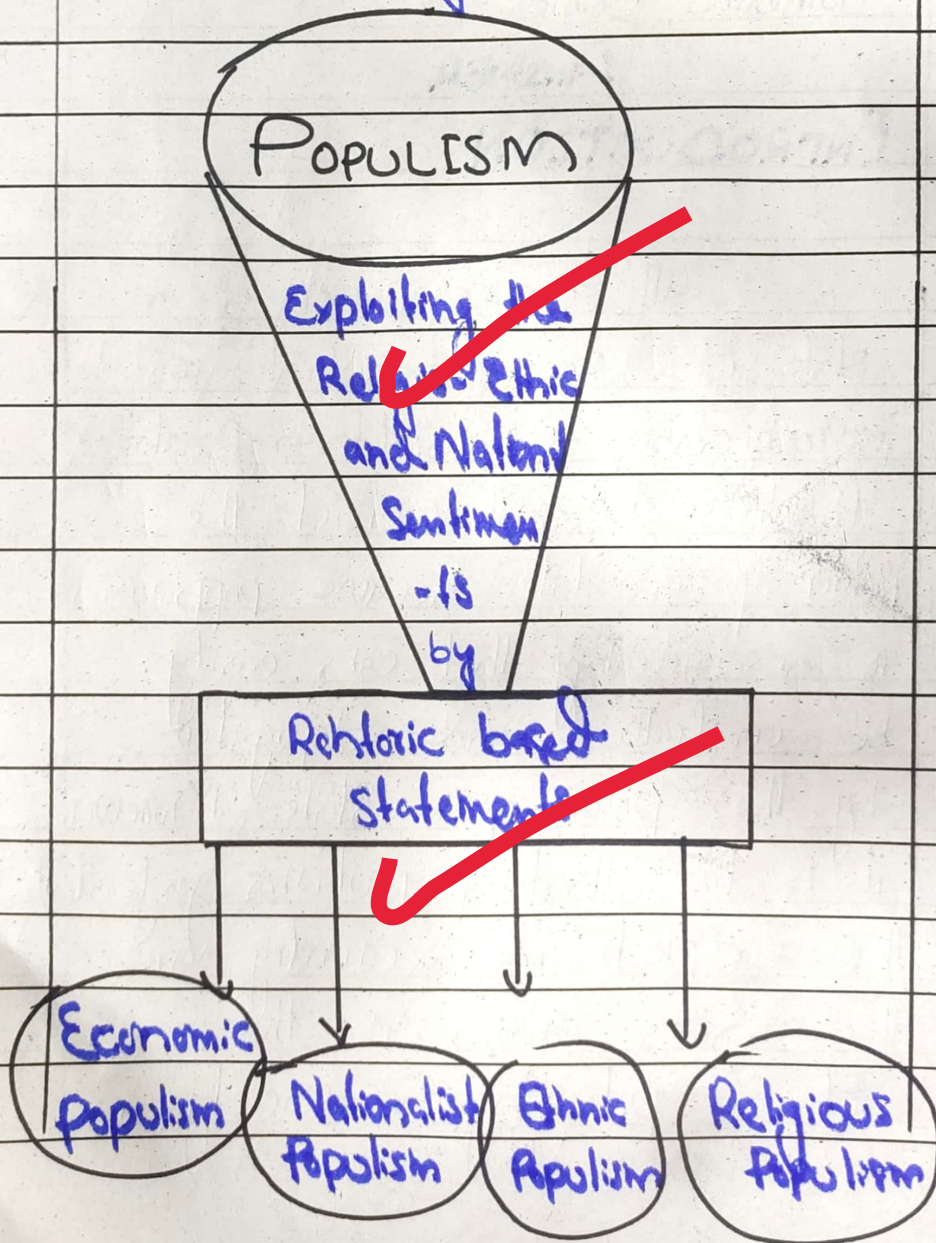 POPULISM
Exploiting the
Religious Ethic
and Nationl
Sentimen
-ts
by
Rehtoric based
statements
Economic
Populism
Nationalist
Populism
Ethnic
Populism
Religious
Populism